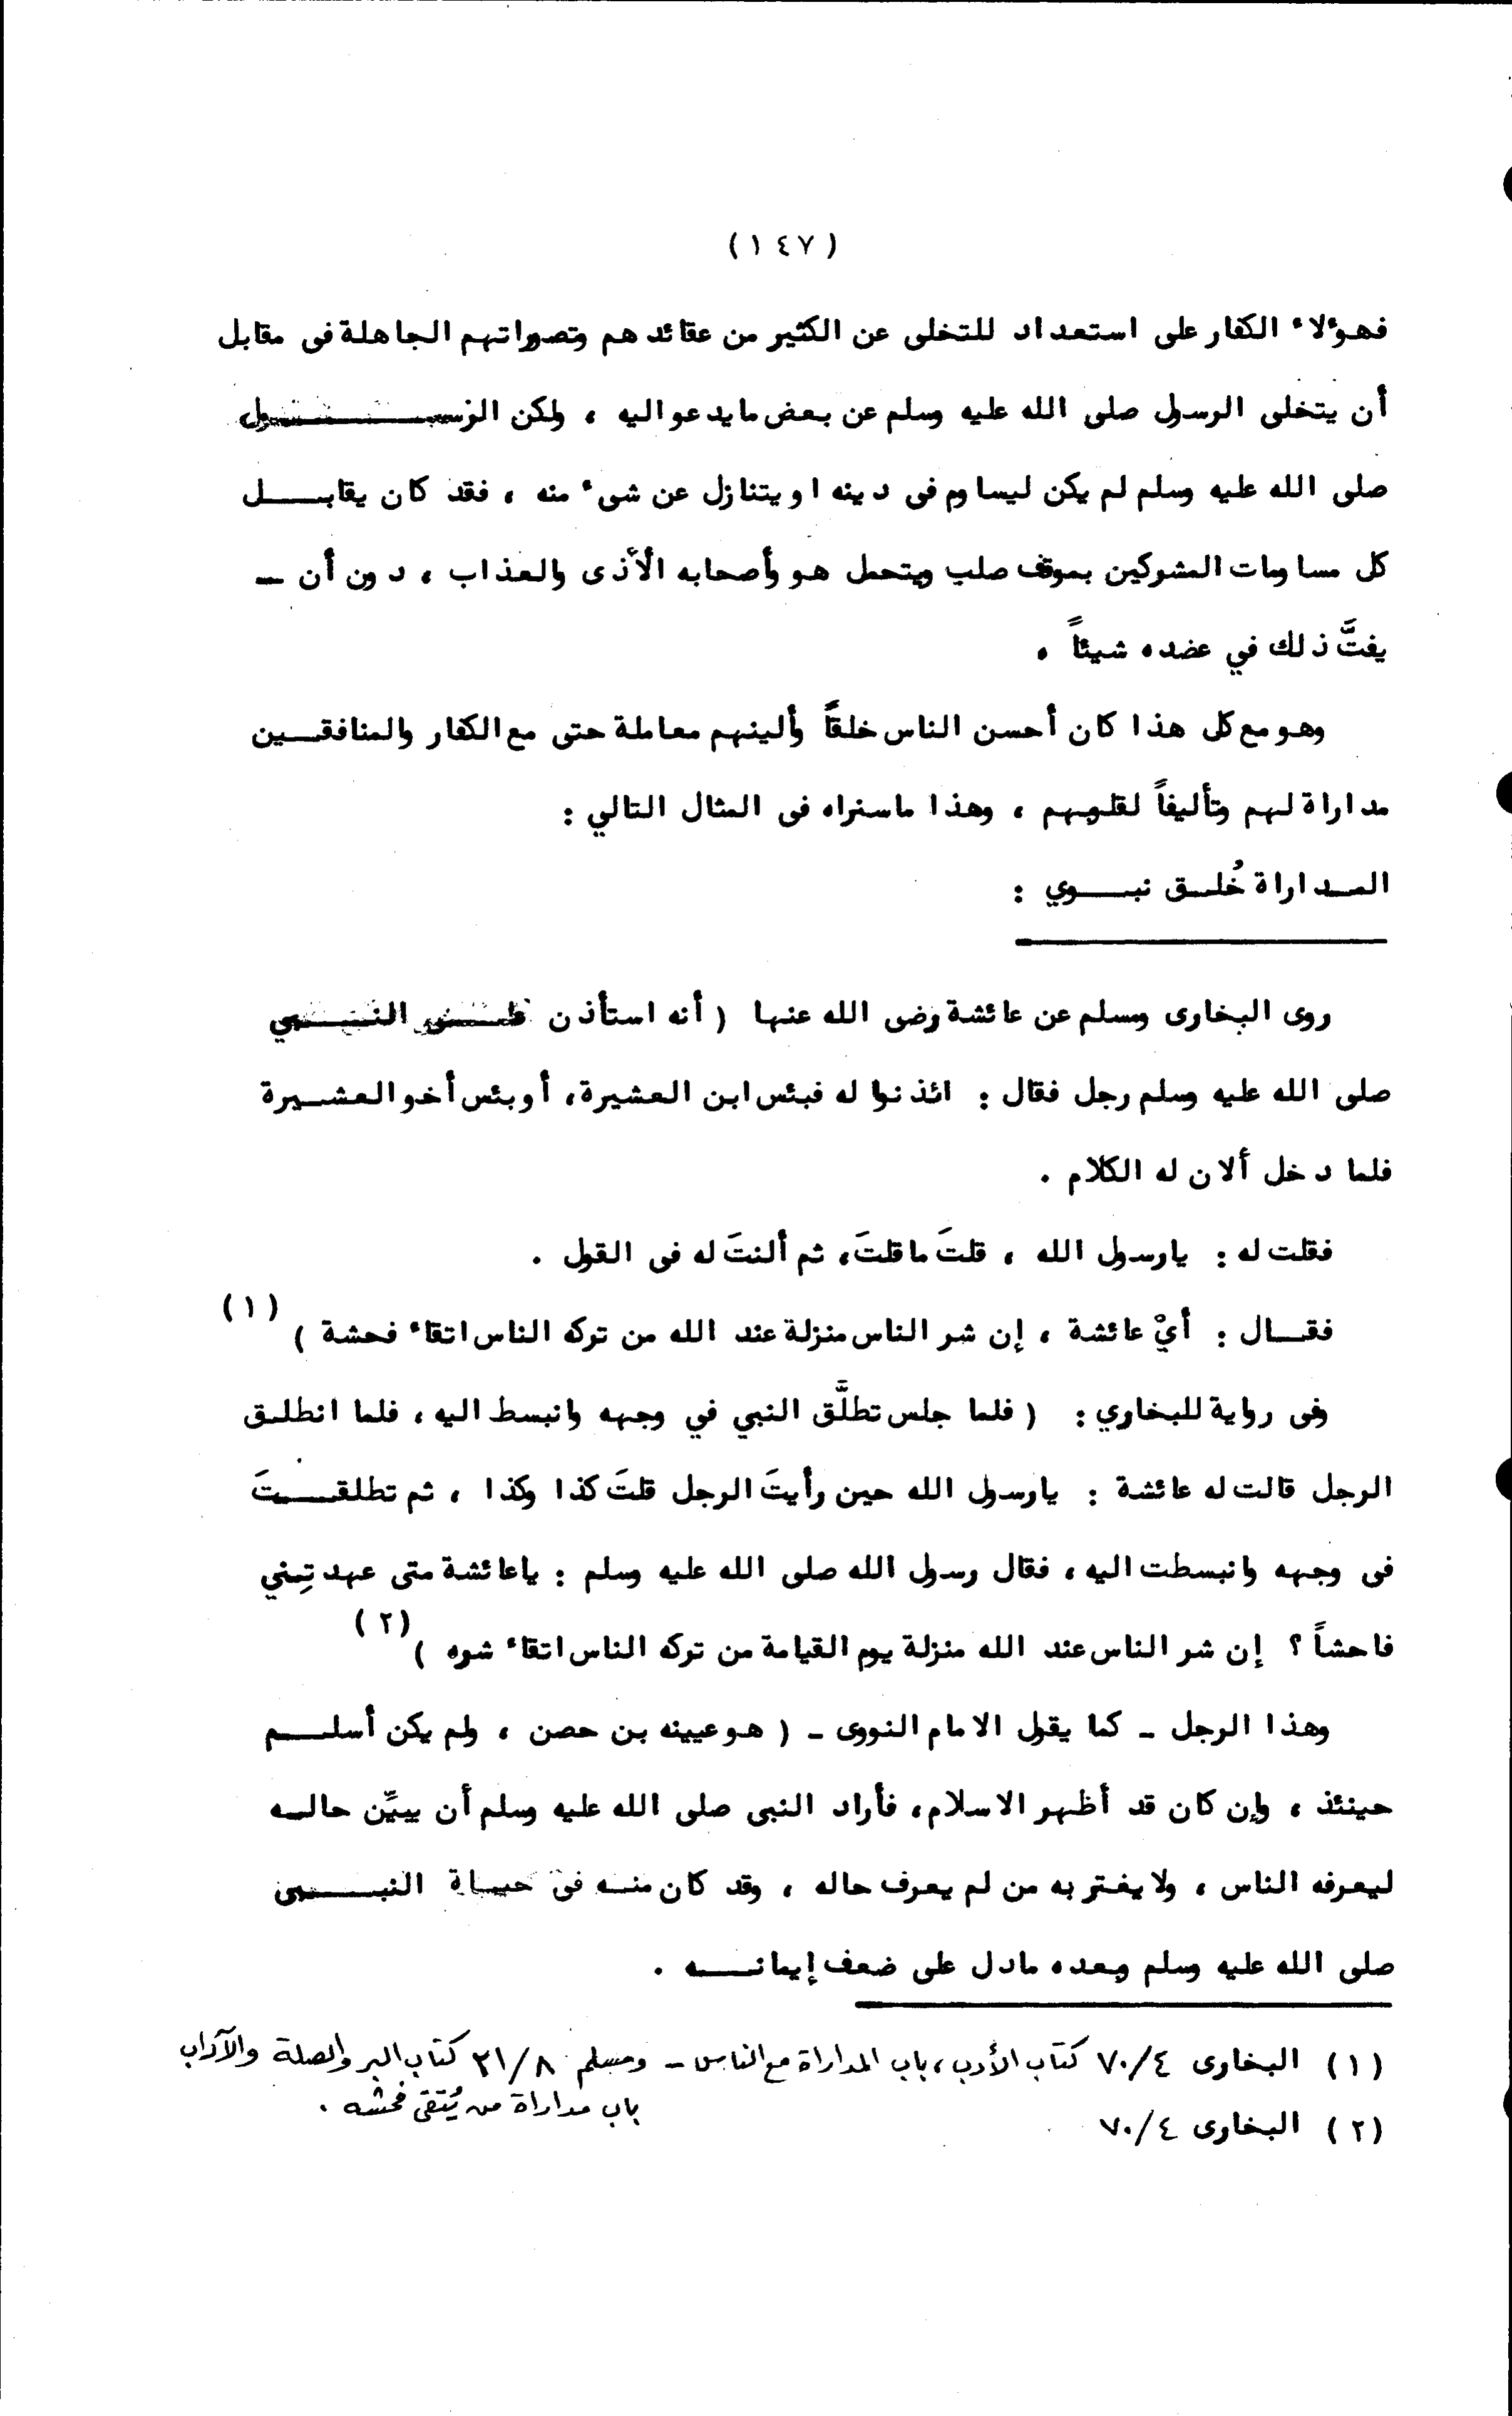 ( ١٤٧ )
فهؤلاء الكفار على استعداد للتخلى عن الكثير من عقائدهم وتصوراتهم الجاهلة فى مقابل
أن يتخلى الرسول صلى الله عليه وسلم عن بعض مايدعو اليه ، ولكن الرسول
صلى الله عليه وسلم لم يكن ليساوم فى دينه او يتنازل عن شىء منه ، فقد كان يقابل
كل مساومات المشركين بموقف صلب ويتحمل هو وأصحابه الأذى والعذاب ، دون أن ــ
يفتَّ ذلك في عضده شيئاً .
وهو مع كل هذا كان أحسن الناس خلقاً وألينهم معاملة حتى مع الكفار والمنافقين
مداراة لهم وتأليفاً لقلوبهم ، وهذا ماسنراه فى المثال التالي :
المداراة خُلق نبوي :
روى البخارى ومسلم عن عائشة رضى الله عنها ( أنه استأذن على النبي
صلى الله عليه وسلم رجل فقال : ائذنوا له فبئس ابن العشيرة، أو بئس أخو العشيرة
فلما دخل ألان له الكلام .
فقلت له : يارسول الله ، قلتَ ماقلتَ، ثم ألنتَ له فى القول .
فقال : أيْ عائشة ، إن شر الناس منزلة عند الله من تركه الناس اتقاء فحشة ) (١)
وفى رواية للبخاري : ( فلما جلس تطلَّق النبي في وجهه وانبسط اليه ، فلما انطلق
الرجل قالت له عائشة : يارسول الله حين رأيتَ الرجل قلتَ كذا وكذا ، ثم تطلقتَ
فى وجهه وانبسطت اليه ، فقال رسول الله صلى الله عليه وسلم : ياعائشة متى عهدتِني
فاحشاً ؟ إن شر الناس عند الله منزلة يوم القيامة من تركه الناس اتقاء شره ) (٢)
وهذا الرجل ـ كما يقول الامام النووى ـ ( هو عيينه بن حصن ، ولم يكن أسلم
حينئذ ، وإن كان قد أظهر الاسلام، فأراد النبى صلى الله عليه وسلم أن يبيِّن حاله
ليعرفه الناس ، ولا يغتر به من لم يعرف حاله ، وقد كان منه فى حياة النبى
صلى الله عليه وسلم وبعده مادل على ضعف إيمانه .
(١) البخارى ٧٠/٤ كتاب الأدب ، باب المداراة مع الناس - ومسلم ٢١/٨ كتاب البر والصلة والآداب
باب مداراة من يُتقى فحشه .
(٢) البخارى ٧٠/٤